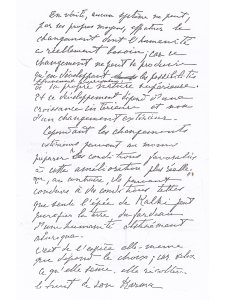 En vérité, aucun système ne peut,
par ses propres moyens, effectuer le
changement dont l'humanité
a réellement besoin; car ce
changement ne peut se produire
qu'en développant les possibilités
de sa propre nature supérieure.
et ce développement dépend d'une
croissance intérieure et non
d'un changement extérieur.
Cependant les changements
extérieurs peuvent au moins
préparer des conditions favorables
à cette amélioration plus réelle
ou, au contraire, ils peuvent
conduire à des conditions telles
que seule l'épée de Kalki peut
purifier la terre du fardeau
d'une humanité obstinément
C'est de l'espèce elle-même
que dépend le choix; car selon
ce qu'elle sème, elle récoltera
le fruit de son Karma